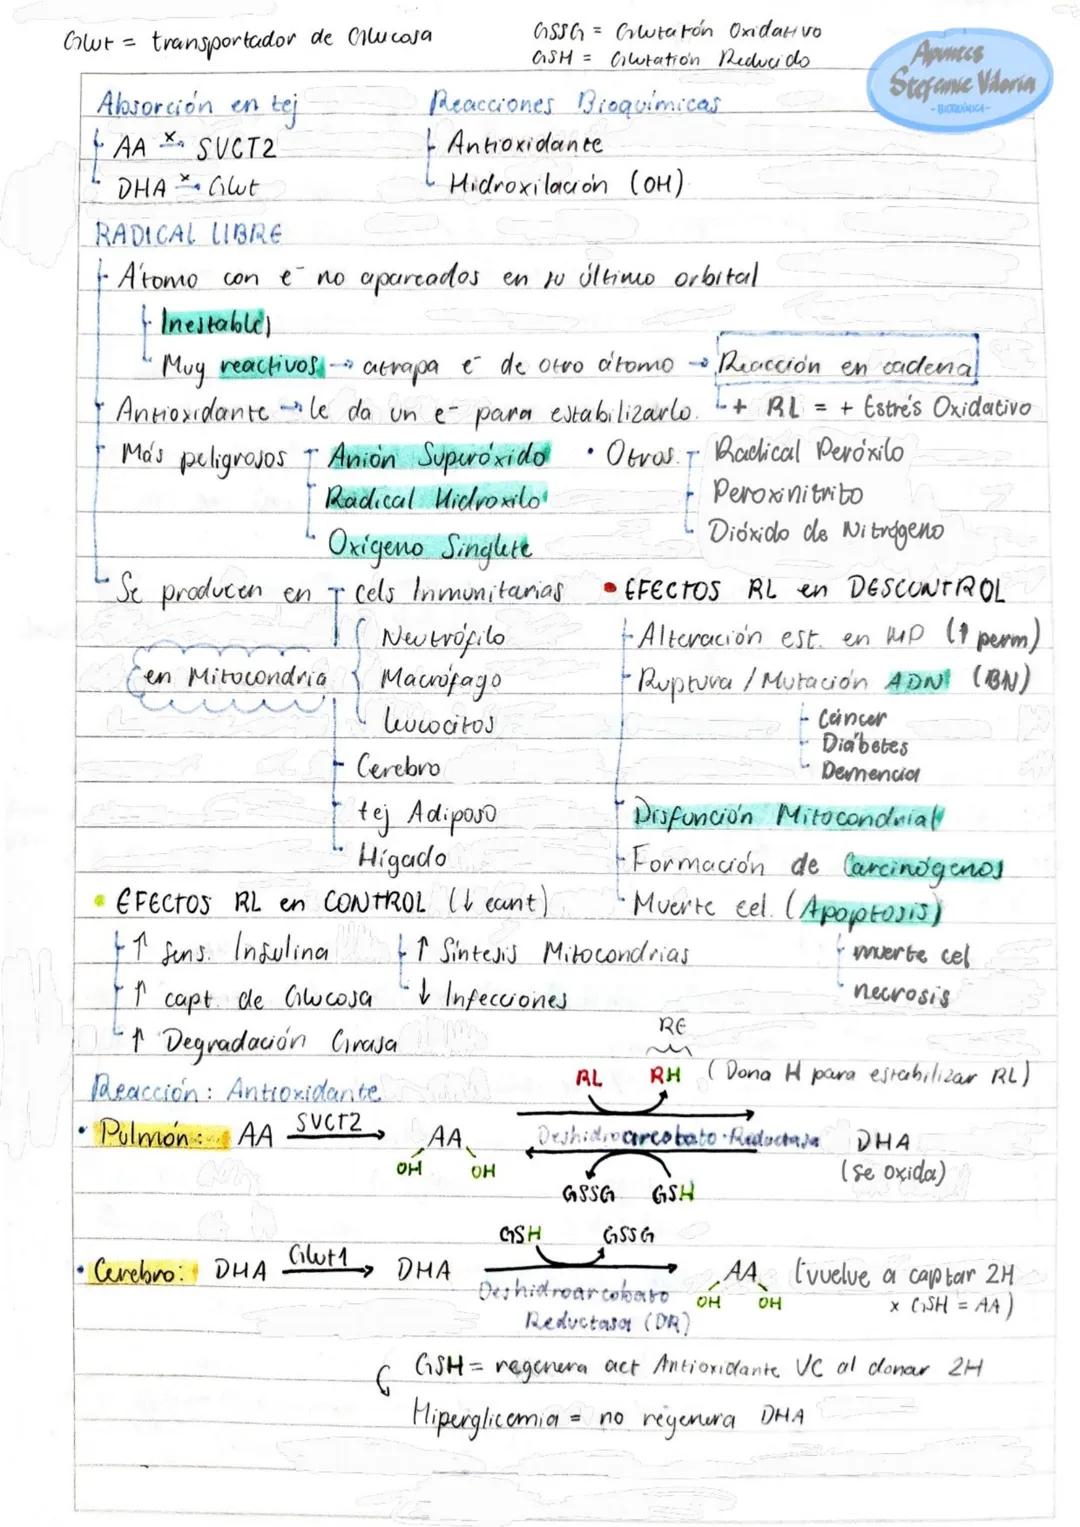 Glut = transportador de Glucosa
GSSG = Glutatón Oxidativo
GSH = Glutatión Reducido
Apuntes
Stefanie Viloria
-BIOQUÍMICA-
Absorción en tej
AA x SVCT2
DHA x Glut
Reacciones Bioquímicas
Antioxidante
Hidroxilación (OH)
RADICAL LIBRE
Átomo con e⁻ no apareados en su último orbital
Inestables
Muy reactivos → atrapa e⁻ de otro átomo → Reacción en cadena
Antioxidante → le da un e⁻ para estabilizarlo.
+ RL = + Estrés Oxidativo
Más peligrosos
Anión Superóxido
Radical Hidroxilo
Oxígeno Singlete
• Otros.
Radical Peróxilo
Peroxinitrito
Dióxido de Nitrógeno
Se producen en
en Mitocondria
cels Inmunitarias
Neutrófilo
Macrófago
leucocitos
Cerebro
tej Adiposo
Hígado
• EFECTOS RL en DESCONTROL
Alteración est. en MP (↑ perm)
Ruptura / Mutación ADN (BN)
Cáncer
Diabetes
Demencia
Disfunción Mitocondrial
Formación de Carcinógenos
Muerte cel. (Apoptosis)
muerte cel
necrosis
• EFECTOS RL en CONTROL (↓ cant)
↑ sens. Insulina
↑ capt. de Glucosa
↑ Degradación Grasa
↑ Síntesis Mitocondrias
↓ Infecciones
Reacción: Antioxidante
RE
RL RH (Dona H para estabilizar RL)
• Pulmón: AA SVCT2 → AA Deshidroarcobato Reductasa DHA
OH OH (se oxida)
GSSG GSH
GSH GSSG
• Cerebro: DHA Glut1 → DHA → AA (vuelve a captar 2H
Deshidroarcobato OH OH x GSH = AA)
Reductasa (DR)
GSH = regenera act Antioxidante VC al donar 2H
Hiperglicemia = no regenera DHA